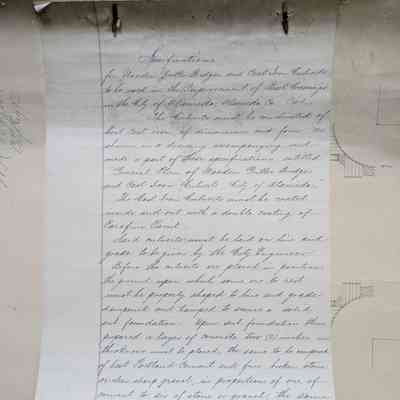 Specifications
for Wooden Gutter Bridges and Cast Iron Culverts
to be used in the Improvement of Street Crossings
in the City of Alameda, Alameda Co. Cal.
The Culverts must be constructed of
best cast iron, of dimensions and form as
shown on a drawing accompanying and
made a part of these specifications entitled
General Plan of Wooden Gutter Bridges
and Cast Iron Culverts City of Alameda.
The Cast Iron Culverts must be coated
inside and out with a double coating of
Paraffine Paint.
Said culverts must be laid on line and
grade to be given by the City Engineer.
Before the culverts are placed in position
the ground upon which same are to rest
must be properly shaped to line and grade
dampened and tamped to secure a solid
foundation. Upon foundation thus
prepared a layer of concrete two (2) inches in
thickness must be placed, the same to be composed
of best Portland Cement and fine broken stone
or clean sharp gravel, in proportions of one of
cement to six of stone or gravel, the same